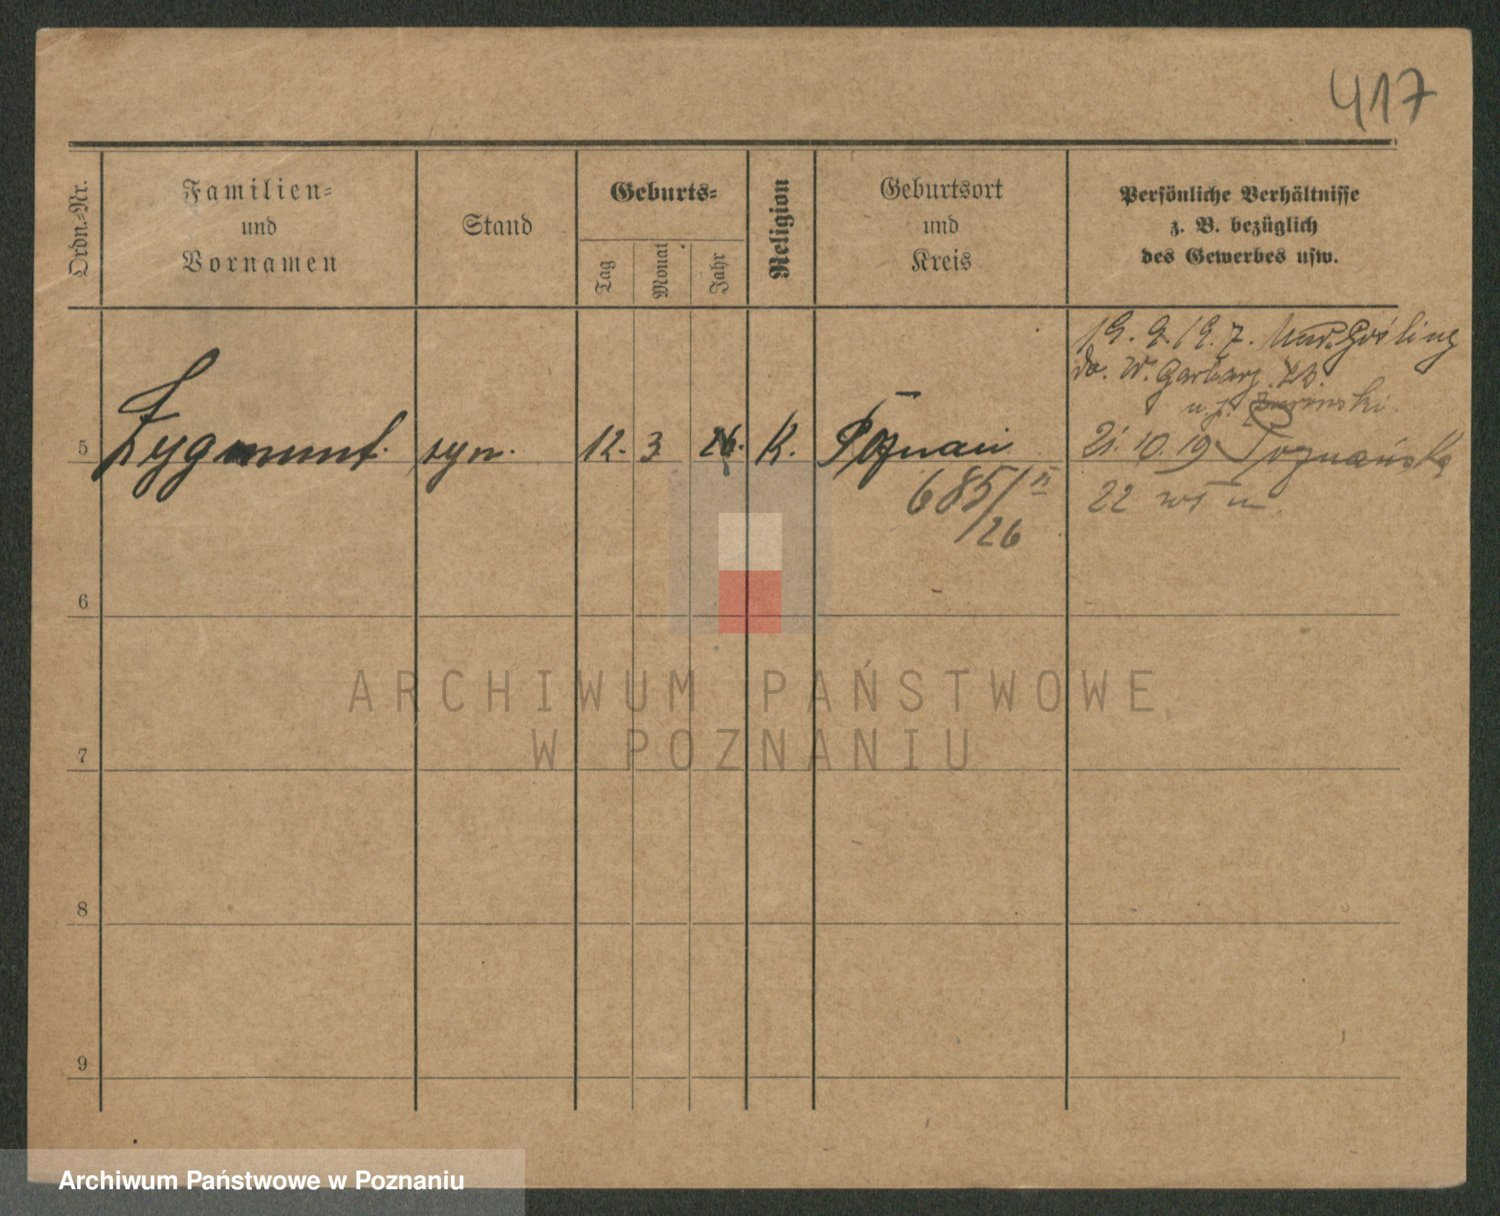 417
Ordn.-Nr.
Familien-
und
Vornamen
Stand
Geburts-
Tag
Monat
Jahr
Religion
Geburtsort
und
Kreis
Persönliche Verhältnisse
z. B. bezüglich
des Gewerbes usw.
19. 9. 19. 7.
W. Garbary
5 Zygmunt. syn. 12. 3 26. K. Poznań
21. 10. 19 Poznańska
685/II
/26
22
6
7
8
9
ARCHIWUM PAŃSTWOWE
W POZNANIU
Archiwum Państwowe w Poznaniu